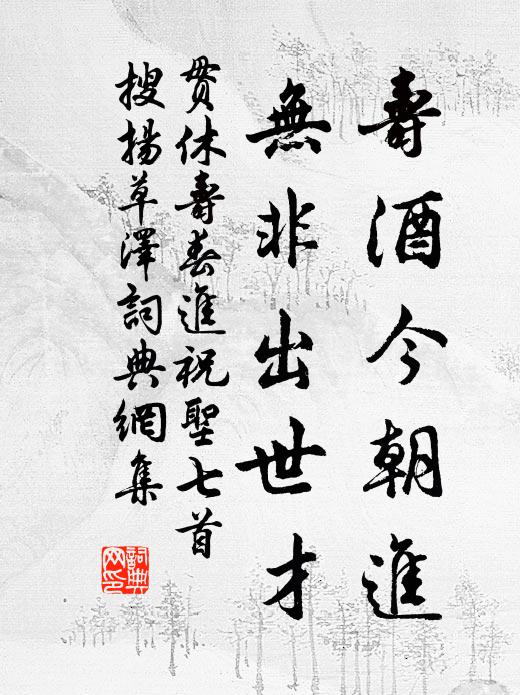 壽酒今朝進
無非出世才
貫休壽春進祝聖七首
搜揚草澤詞典網集
詞典網印